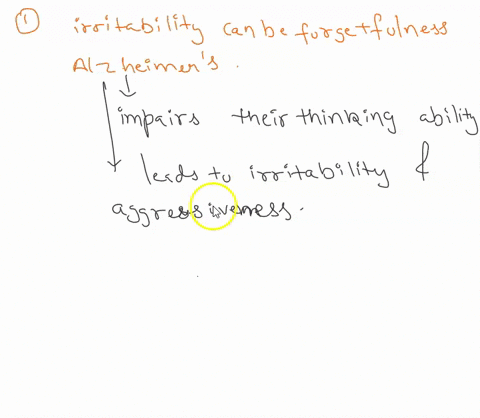 ① irritability can be forgetfulness
Alzheimer's.
impairs their thinking ability
leads to irritability &
aggressiveness.